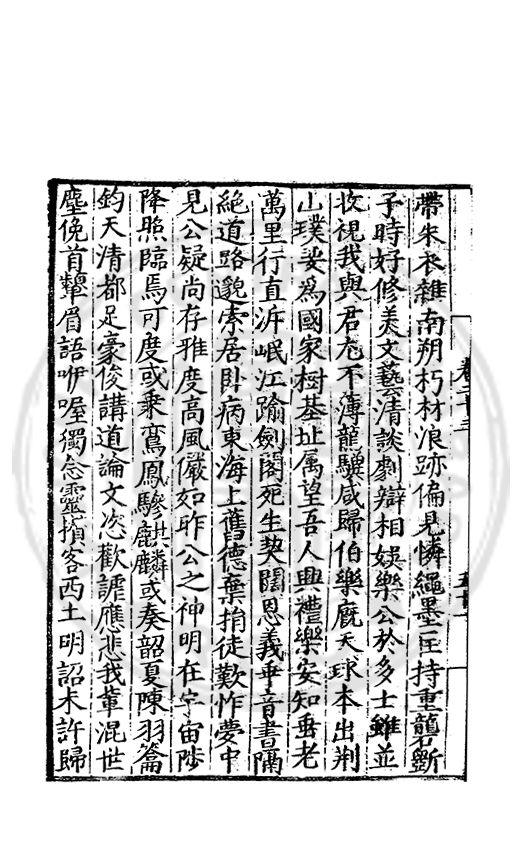 卷二十三
帶朱衣雜南朔朽材浪跡偏見憐繩墨匡持重礱斲
子時好修美文藝清談劇辯相娛樂公於多士雖並
收視我與君尤不薄龍驥咸歸伯樂廐天球本出荆
山璞妄為國家樹基址属望吾人興禮樂安知垂老
萬里行直泝岷江踰劍閣死生契闊恩義乖音書隔
絕道路邈索居卧病東海上舊德棄捐徒歎怍夢中
見公疑尚存雅度高風儼如昨公之神明在宇宙陟
降照臨焉可度或乘鸞鳳驂麒麟或奏韶夏陳羽籥
鈞天清都足豪俊講道論文恣歡謔應悲我輩混世
塵俛首顰眉語咿喔獨念靈擯客西土明詔未許歸